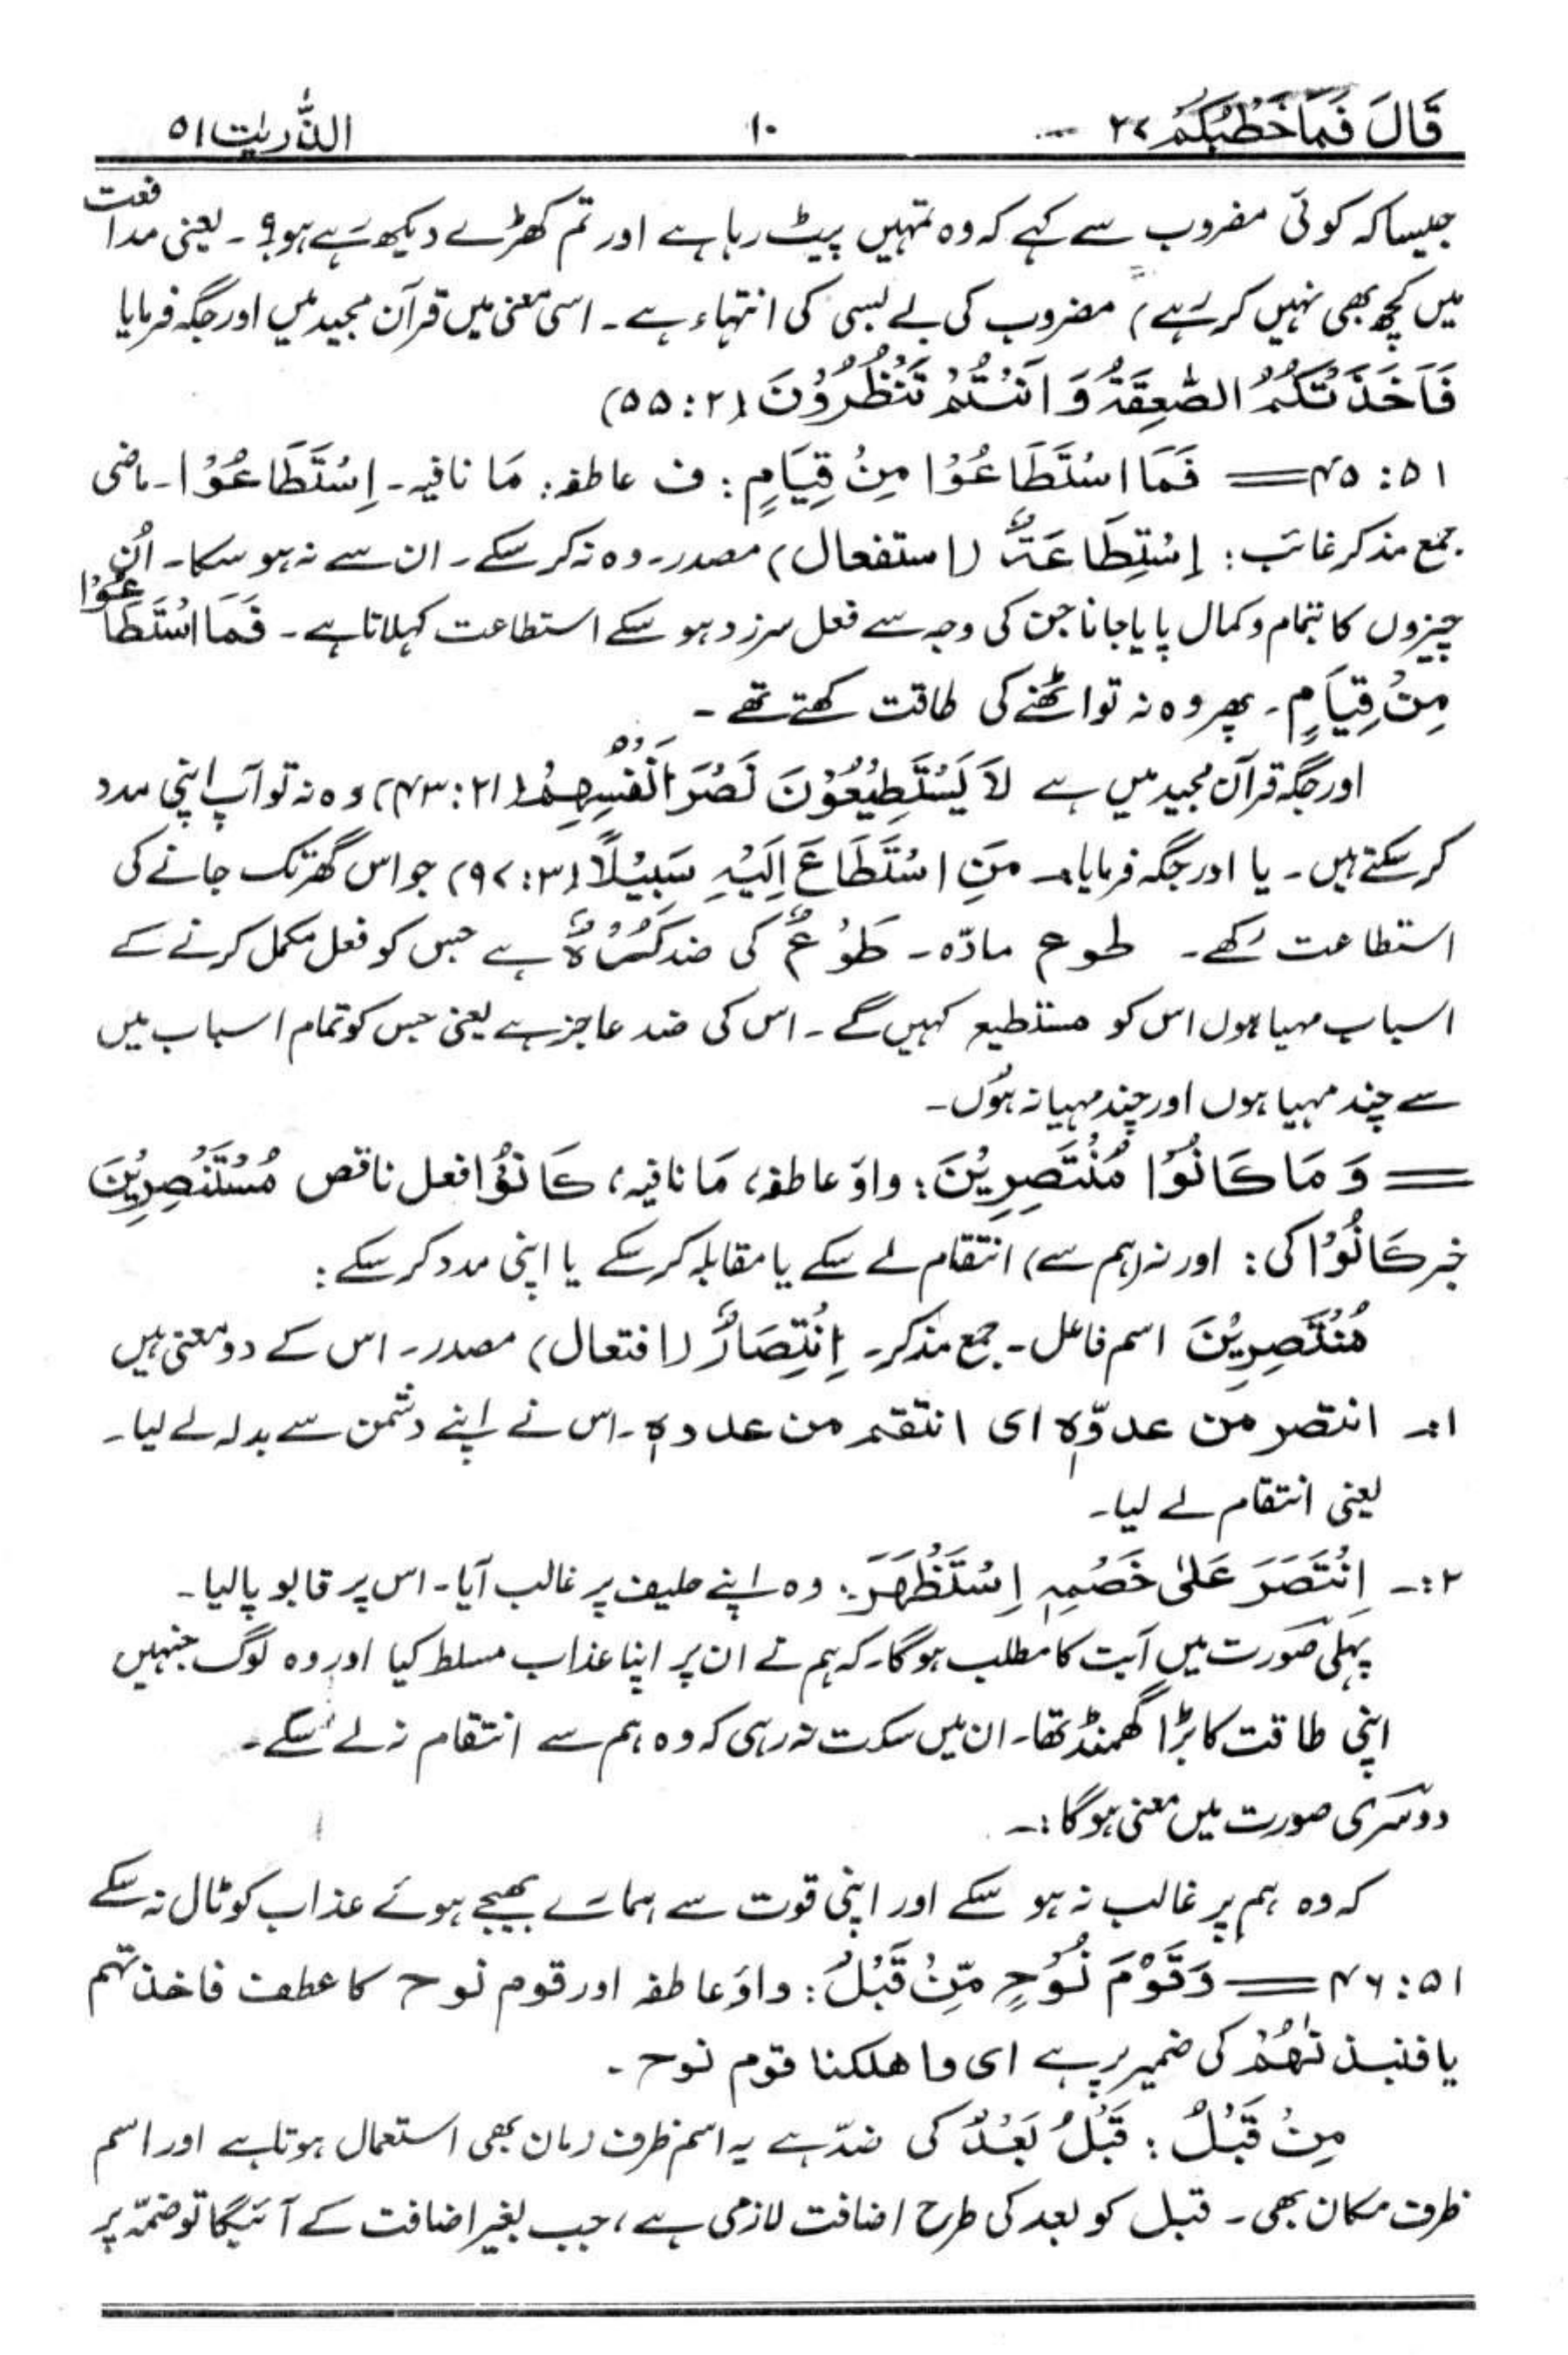 قَالَ فَمَا خَطْبُكُمْ ۲۷ ۱۰ الذّٰریٰت ۵۱
جیسا کہ کوئی مضروب سے کہے کہ وہ تمہیں پیٹ رہا ہے اور تم کھڑے دیکھ رہے ہو؟ ۔ یعنی مدافعت
میں کچھ بھی نہیں کر رہے) مضروب کی بے بسی کی انتہاء ہے ۔ اسی معنی میں قرآن مجید میں اور جگہ فرمایا
فَاَخَذَتْكُمُ الصّٰعِقَةُ وَ اَنْتُمْ تَنْظُرُوْنَ (۲:۵۵)
۵۱:۴۵ = فَمَا اسْتَطَاعُوْا مِنْ قِيَامٍ: ف عاطفہ: مَا نافیہ ۔ اِسْتَطَاعُوْا ۔ ماضی
جمع مذکر غائب: اِسْتِطَاعَةٌ (استفعال) مصدر ۔ وہ نہ کر سکے ۔ ان سے نہ ہو سکا ۔ اُن
چیزوں کا بتمام و کمال پایا جانا جن کی وجہ سے فعل سرزد ہو سکے استطاعت کہلاتا ہے ۔ فَمَا اسْتَطَاعُوْا
مِنْ قِيَامٍ ۔ پھر وہ نہ تو اٹھنے کی طاقت رکھتے تھے ۔
اور جگہ قرآن مجید میں ہے لَا يَسْتَطِيْعُوْنَ نَصْرَ اَنْفُسِهِمْ (۲۱:۴۳) وہ نہ تو آپ اپنی مدد
کر سکتے ہیں ۔ یا اور جگہ فرمایا:۔ مَنِ اسْتَطَاعَ اِلَيْهِ سَبِيْلًا (۳:۹۷) جو اس گھر تک جانے کی
استطاعت رکھے ۔ ط و ع مادّہ ۔ طَوْعٌ کی ضد كُرْهٌ ہے جس کو فعل مکمل کرنے کے
اسباب مہیا ہوں اس کو مستطیع کہیں گے ۔ اس کی ضد عاجز ہے یعنی جس کو تمام اسباب میں
سے چند مہیا ہوں اور چند مہیا نہ ہوں ۔
= وَ مَا كَانُوْا مُنْتَصِرِيْنَ: واؤ عاطفہ، مَا نافیہ، كَانُوْا فعل ناقص مُسْتَنْصِرِيْنَ
خبر كَانُوْا کی: اور نہ (ہم سے) انتقام لے سکے یا مقابلہ کر سکے یا اپنی مدد کر سکے:
مُنْتَصِرِيْنَ اسم فاعل ۔ جمع مذکر ۔ اِنْتِصَارٌ (افتعال) مصدر ۔ اس کے دو معنی ہیں
۱:۔ انتصر من عدوّہٖ ای انتقم من عدوہٖ ۔ اس نے اپنے دشمن سے بدلہ لے لیا ۔
یعنی انتقام لے لیا ۔
۲:۔ اِنْتَصَرَ عَلٰى خَصْمِهٖ اِسْتَظْهَرَ: وہ اپنے حلیف پر غالب آیا ۔ اس پر قابو پا لیا ۔
پہلی صورت میں آیت کا مطلب ہوگا ۔ کہ ہم نے ان پر اپنا عذاب مسلط کیا اور وہ لوگ جنہیں
اپنی طاقت کا بڑا گھمنڈ تھا ۔ ان میں سکت نہ رہی کہ وہ ہم سے انتقام نہ لے سکے ۔
دوسری صورت میں معنی ہوگا:۔
کہ وہ ہم پر غالب نہ ہو سکے اور اپنی قوت سے ہمارے بھیجے ہوئے عذاب کو ٹال نہ سکے
۵۱:۴۶ = وَقَوْمَ نُوْحٍ مِّنْ قَبْلُ: واؤ عاطفہ اور قوم نوح کا عطف فاخذتھم
یا فنبذنٰهُمْ کی ضمیر پر ہے ای و اھلکنا قوم نوح ۔
مِنْ قَبْلُ: قَبْلُ بَعْدُ کی ضدّ ہے یہ اسم ظرف زمان بھی استعمال ہوتا ہے اور اسم
ظرف مکان بھی ۔ قبل کو بعد کی طرح اضافت لازمی ہے، جب بغیر اضافت کے آئیگا تو ضمّہ پر